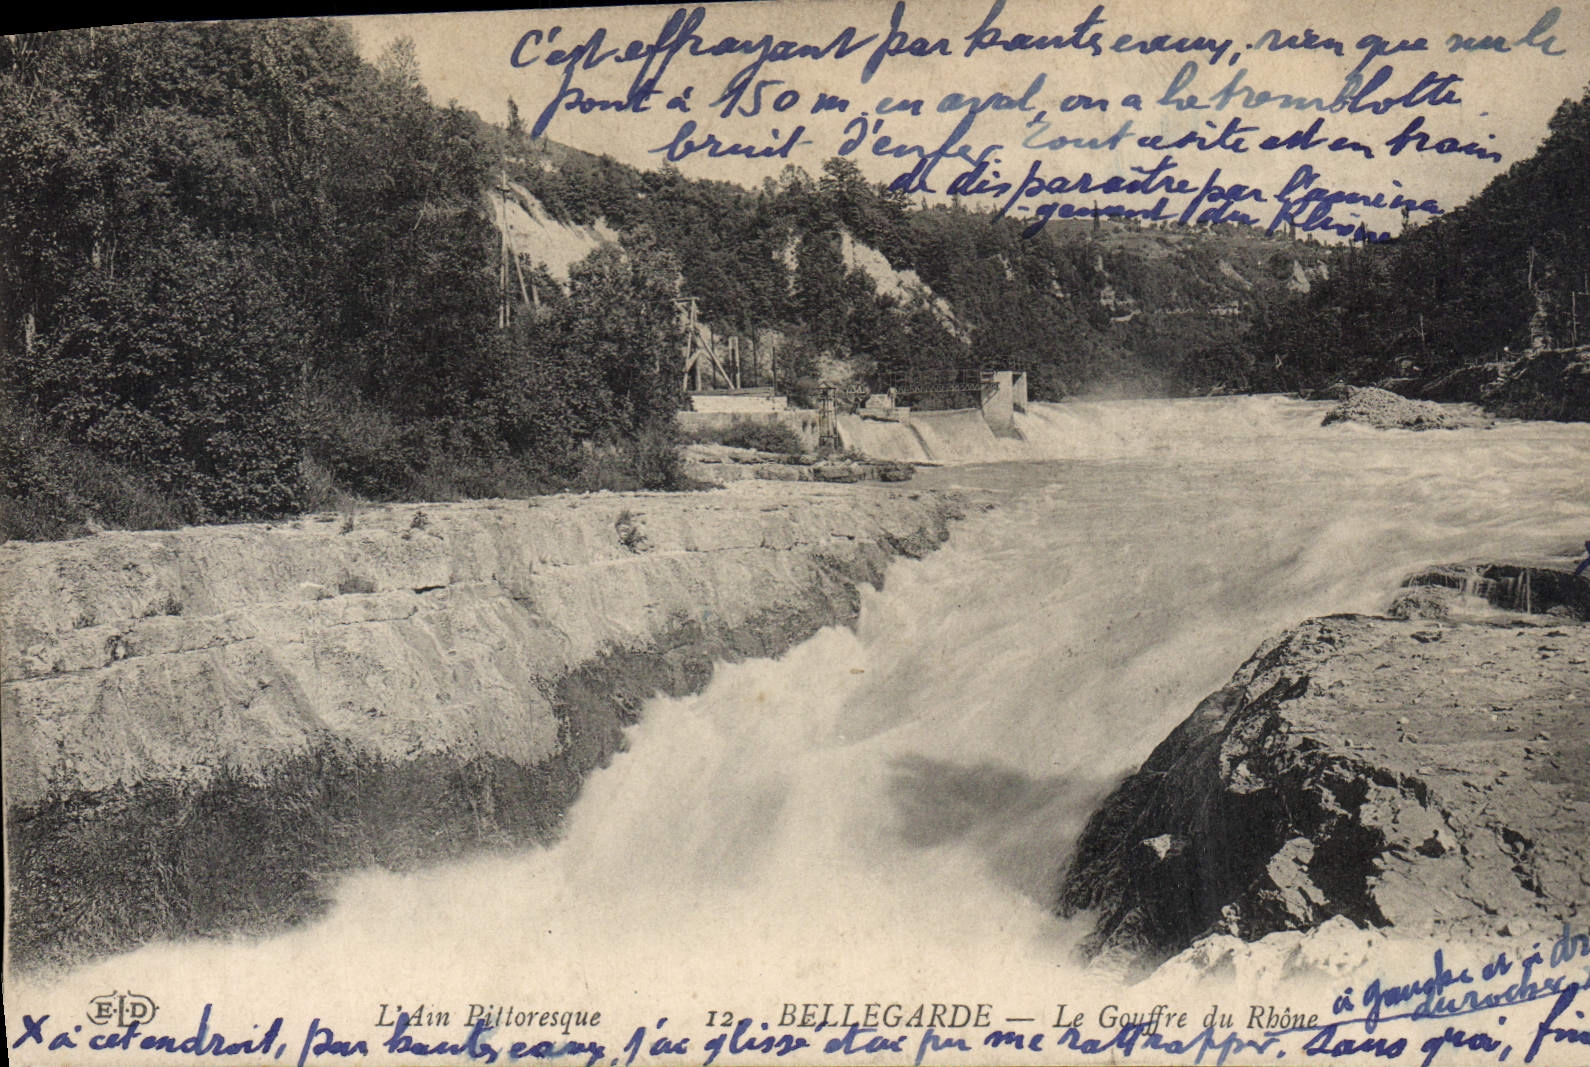 C'est effrayant par hautes eaux, rien que sur le
pont à 150 m. en aval, on a la tremblotte
bruit d'enfer. Tout ce site est en train
de disparaître par l'aména
-gement du Rhône
à gauche et à dr
du rocher
E.L.D
L'Ain Pittoresque 12. BELLEGARDE — Le Gouffre du Rhône
X à cet endroit, par hautes eaux, j'ai glissé et ai pu me rattrapper. Sans quoi, fin